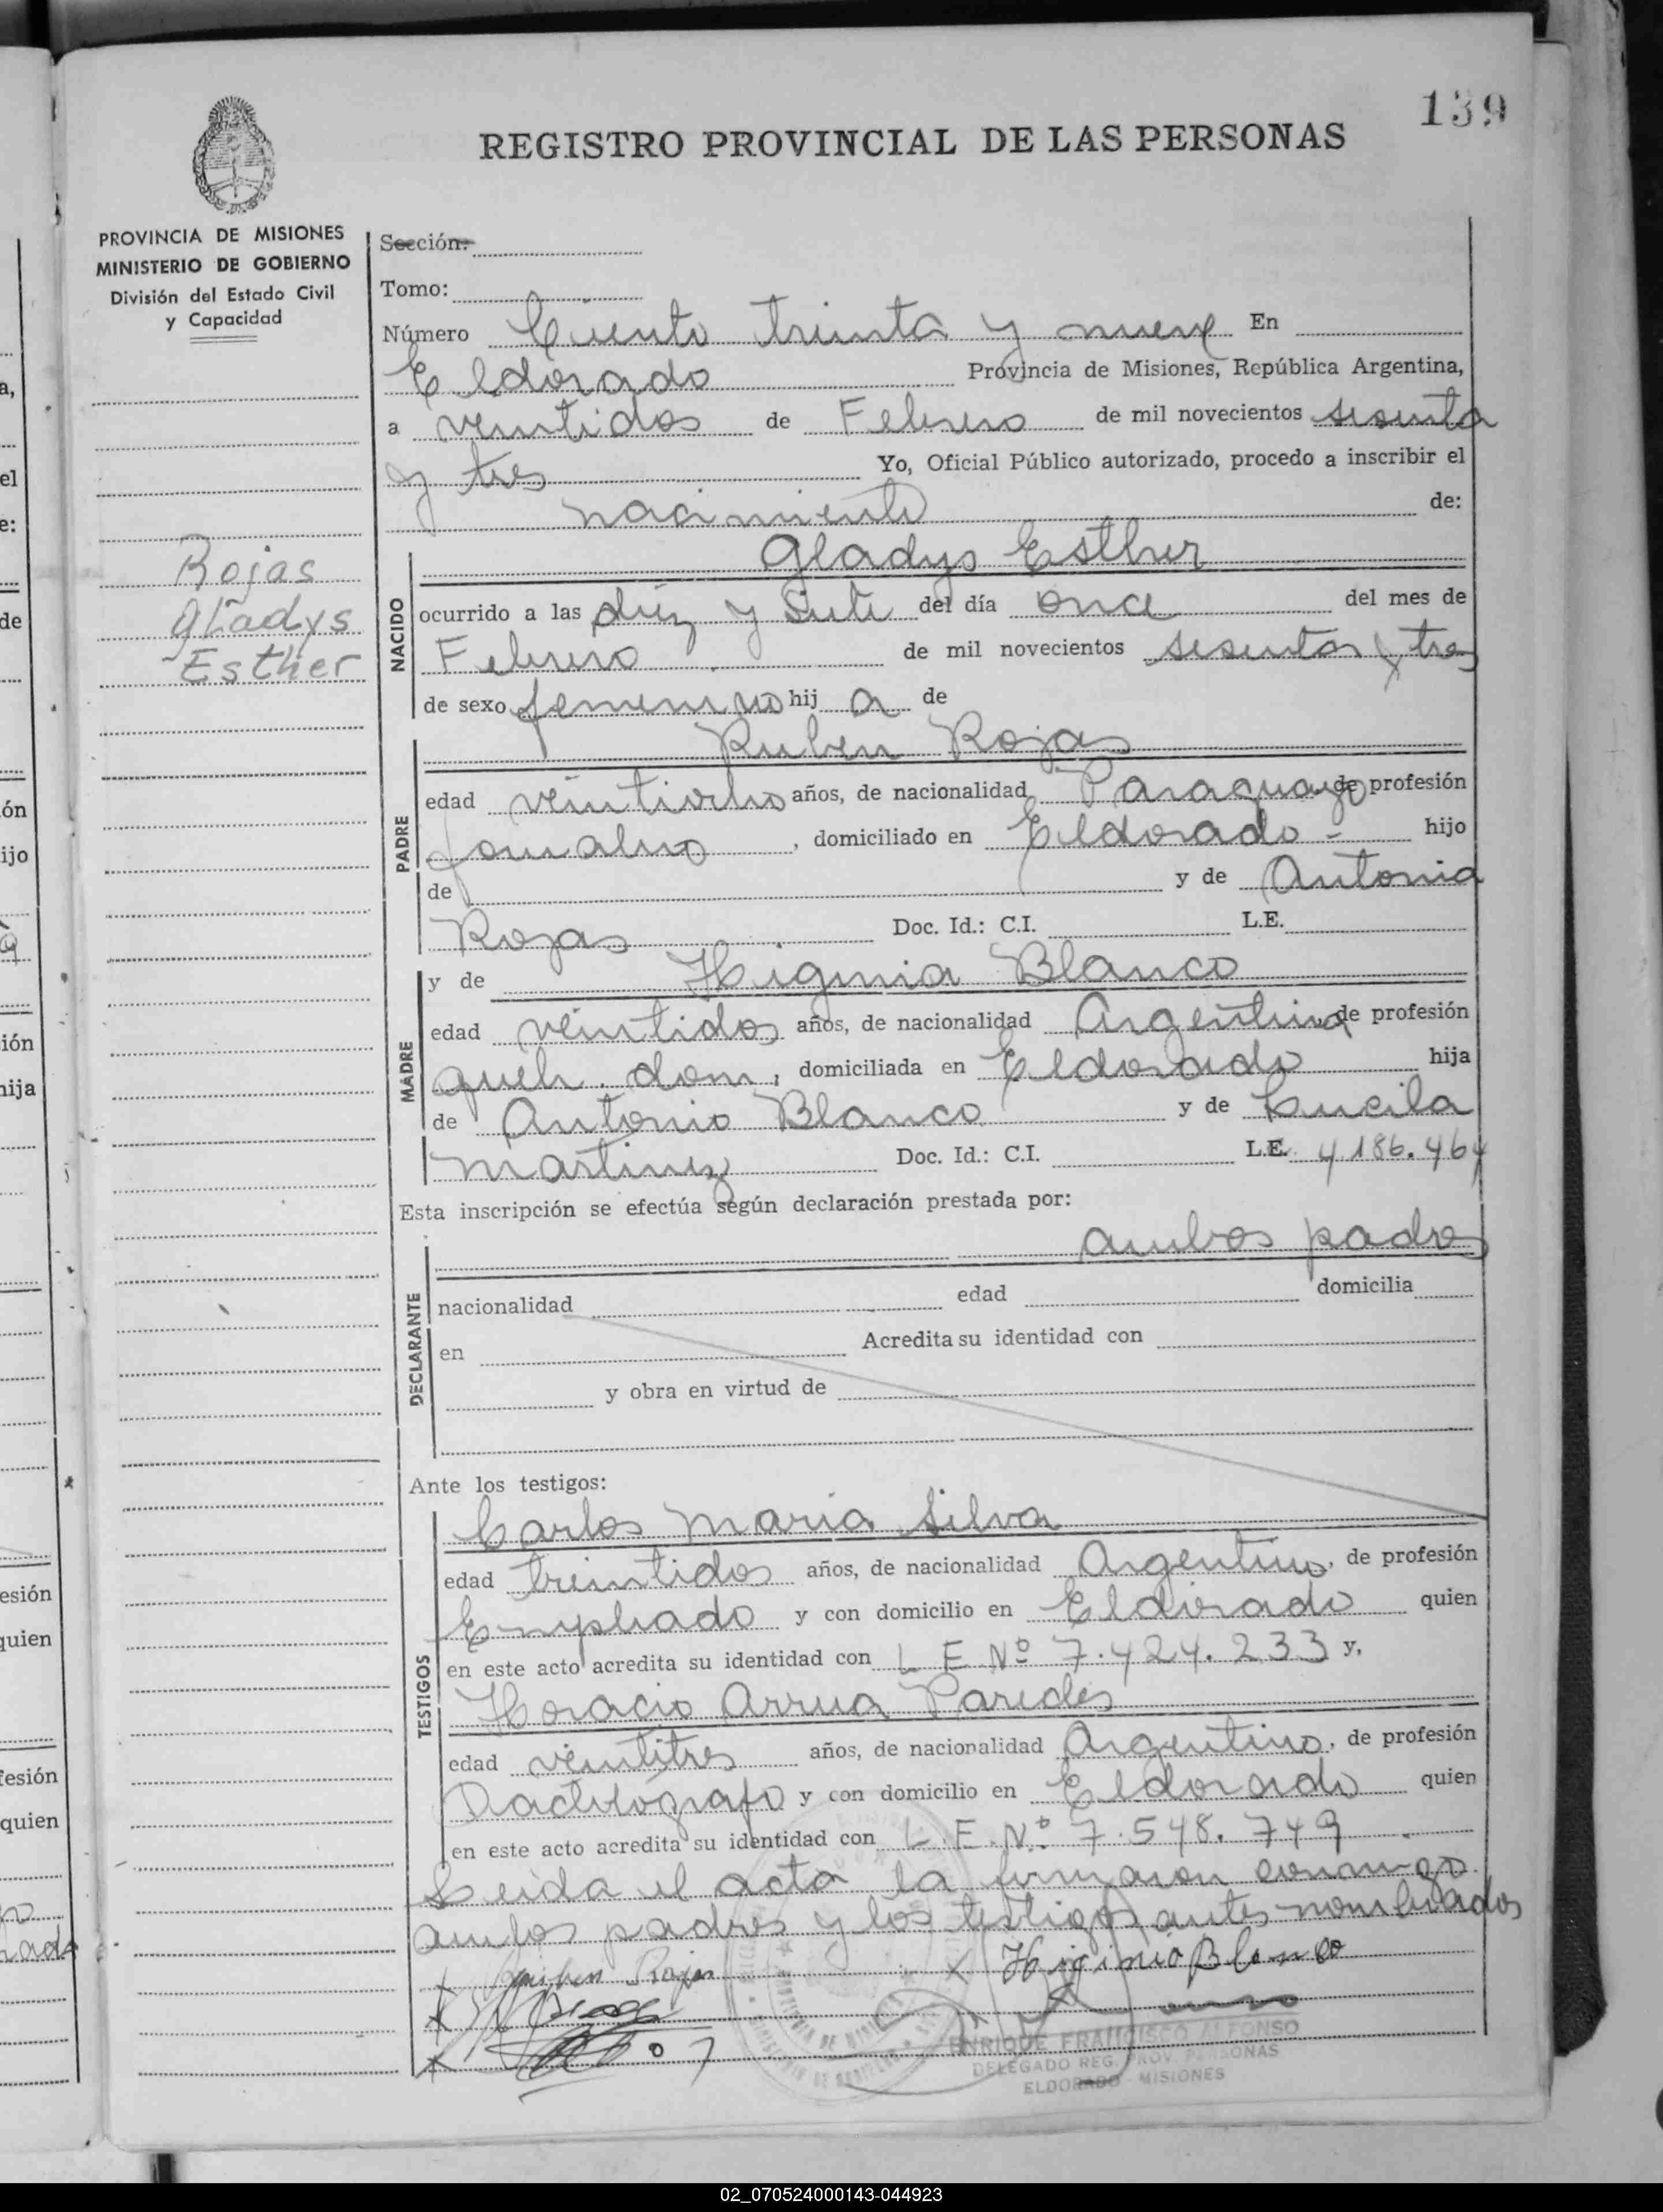 139
REGISTRO PROVINCIAL DE LAS PERSONAS
PROVINCIA DE MISIONES
MINISTERIO DE GOBIERNO
División del Estado Civil
y Capacidad
Rojas
Gladys
Esther
Sección:
Tomo:
Número Ciento treinta y nueve En
Eldorado Provincia de Misiones, República Argentina,
a veintidos de Febrero de mil novecientos sesenta
y tres Yo, Oficial Público autorizado, procedo a inscribir el
nacimiento de:
NACIDO
Gladys Esther
ocurrido a las diez y siete del día once del mes de
Febrero de mil novecientos sesenta y tres
de sexo femenino hij a de
PADRE
Ruben Rojas
edad veintiocho años, de nacionalidad Paraguayo de profesión
Jornalero, domiciliado en Eldorado - hijo
de y de Antonia
Rojas Doc. Id.: C.I. L.E.
MADRE
y de Higinia Blanco
edad veintidos años, de nacionalidad Argentina, de profesión
queh. dom, domiciliada en Eldorado hija
de Antonio Blanco y de Lucila
Martinez Doc. Id.: C.I. L.E. 4186.464
Esta inscripción se efectúa según declaración prestada por:
DECLARANTE
ambos padres
nacionalidad edad domicilia
en Acredita su identidad con
y obra en virtud de
Ante los testigos:
TESTIGOS
Carlos Maria Silva
edad treintidos años, de nacionalidad Argentino, de profesión
Empleado y con domicilio en Eldorado quien
en este acto acredita su identidad con L E Nº 7.424.233 y,
Horacio Arrua Paredes
edad veintitres años, de nacionalidad Argentino, de profesión
Dactilografo y con domicilio en Eldorado quien
en este acto acredita su identidad con L.E.Nº 7.548.749
Leida el acta la firmaron conmigo
ambos padres y los testigos antes nombrados
Ruben Rojas x Higinia Blanco
ENRIQUE FRANCISCO ALFONSO
DELEGADO REG. PROV. PERSONAS
ELDORADO - MISIONES
02_070524000143-044923